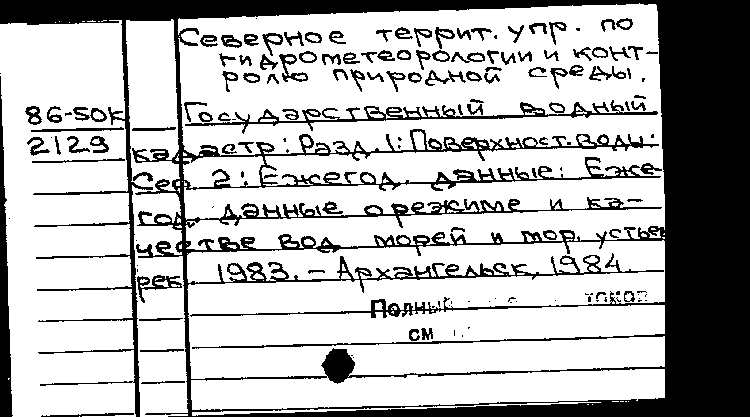 Северное террит. упр. по
гидрометеорологии и конт-
ролю природной среды.
86-50к
Государственный водный
2129
кадастр: Разд. 1: Поверхност. воды:
Сер. 2: Ежегод. данные: Еже-
год. данные о режиме и ка-
честве вод морей и мор. устьев
рек. 1983. - Архангельск, 1984.
Полный
см